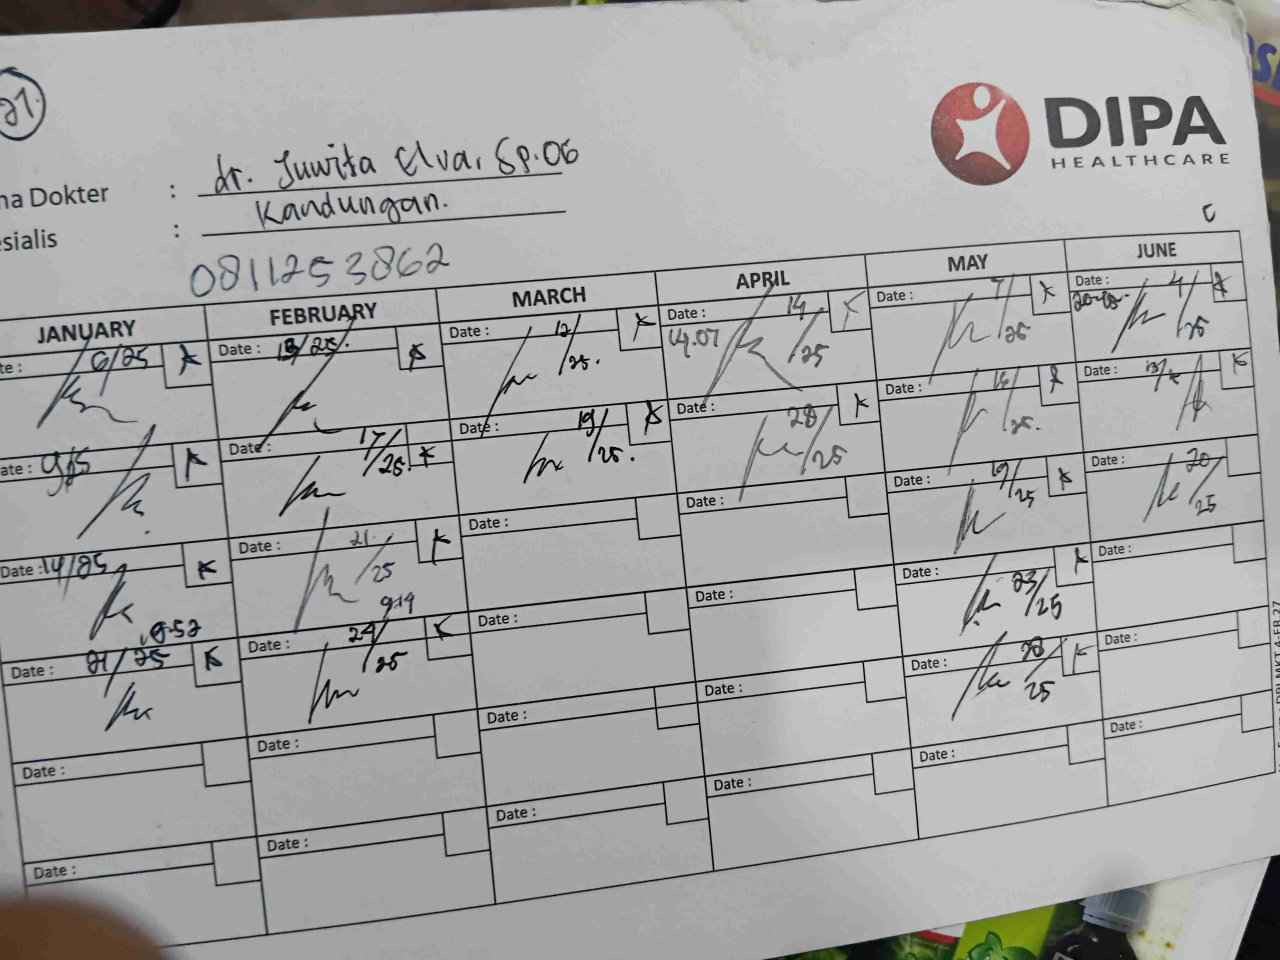 21.
DIPA
HEALTHCARE
na Dokter : dr. Juwita Elva. Sp.OG
esialis : Kandungan.
0811253862
C
JANUARY FEBRUARY MARCH APRIL MAY JUNE
te: 6/25 Date : 13/25. Date : 12/25. Date : 14/25 14.07 Date : 7/25 Date : 4/25
ate: 9/25 Date : 17/25. Date : 19/25. Date : 28/25 Date : 14/25. Date :
Date : 14/25 Date : 21/25 Date : Date : Date : 19/25 Date : 20/25
Date : 21/25 Date : 24/25 9.19 Date : Date : Date : 23/25 Date :
Date : Date : Date : Date : Date : 28/25 Date :
Date : Date : Date : Date : Date : Date :